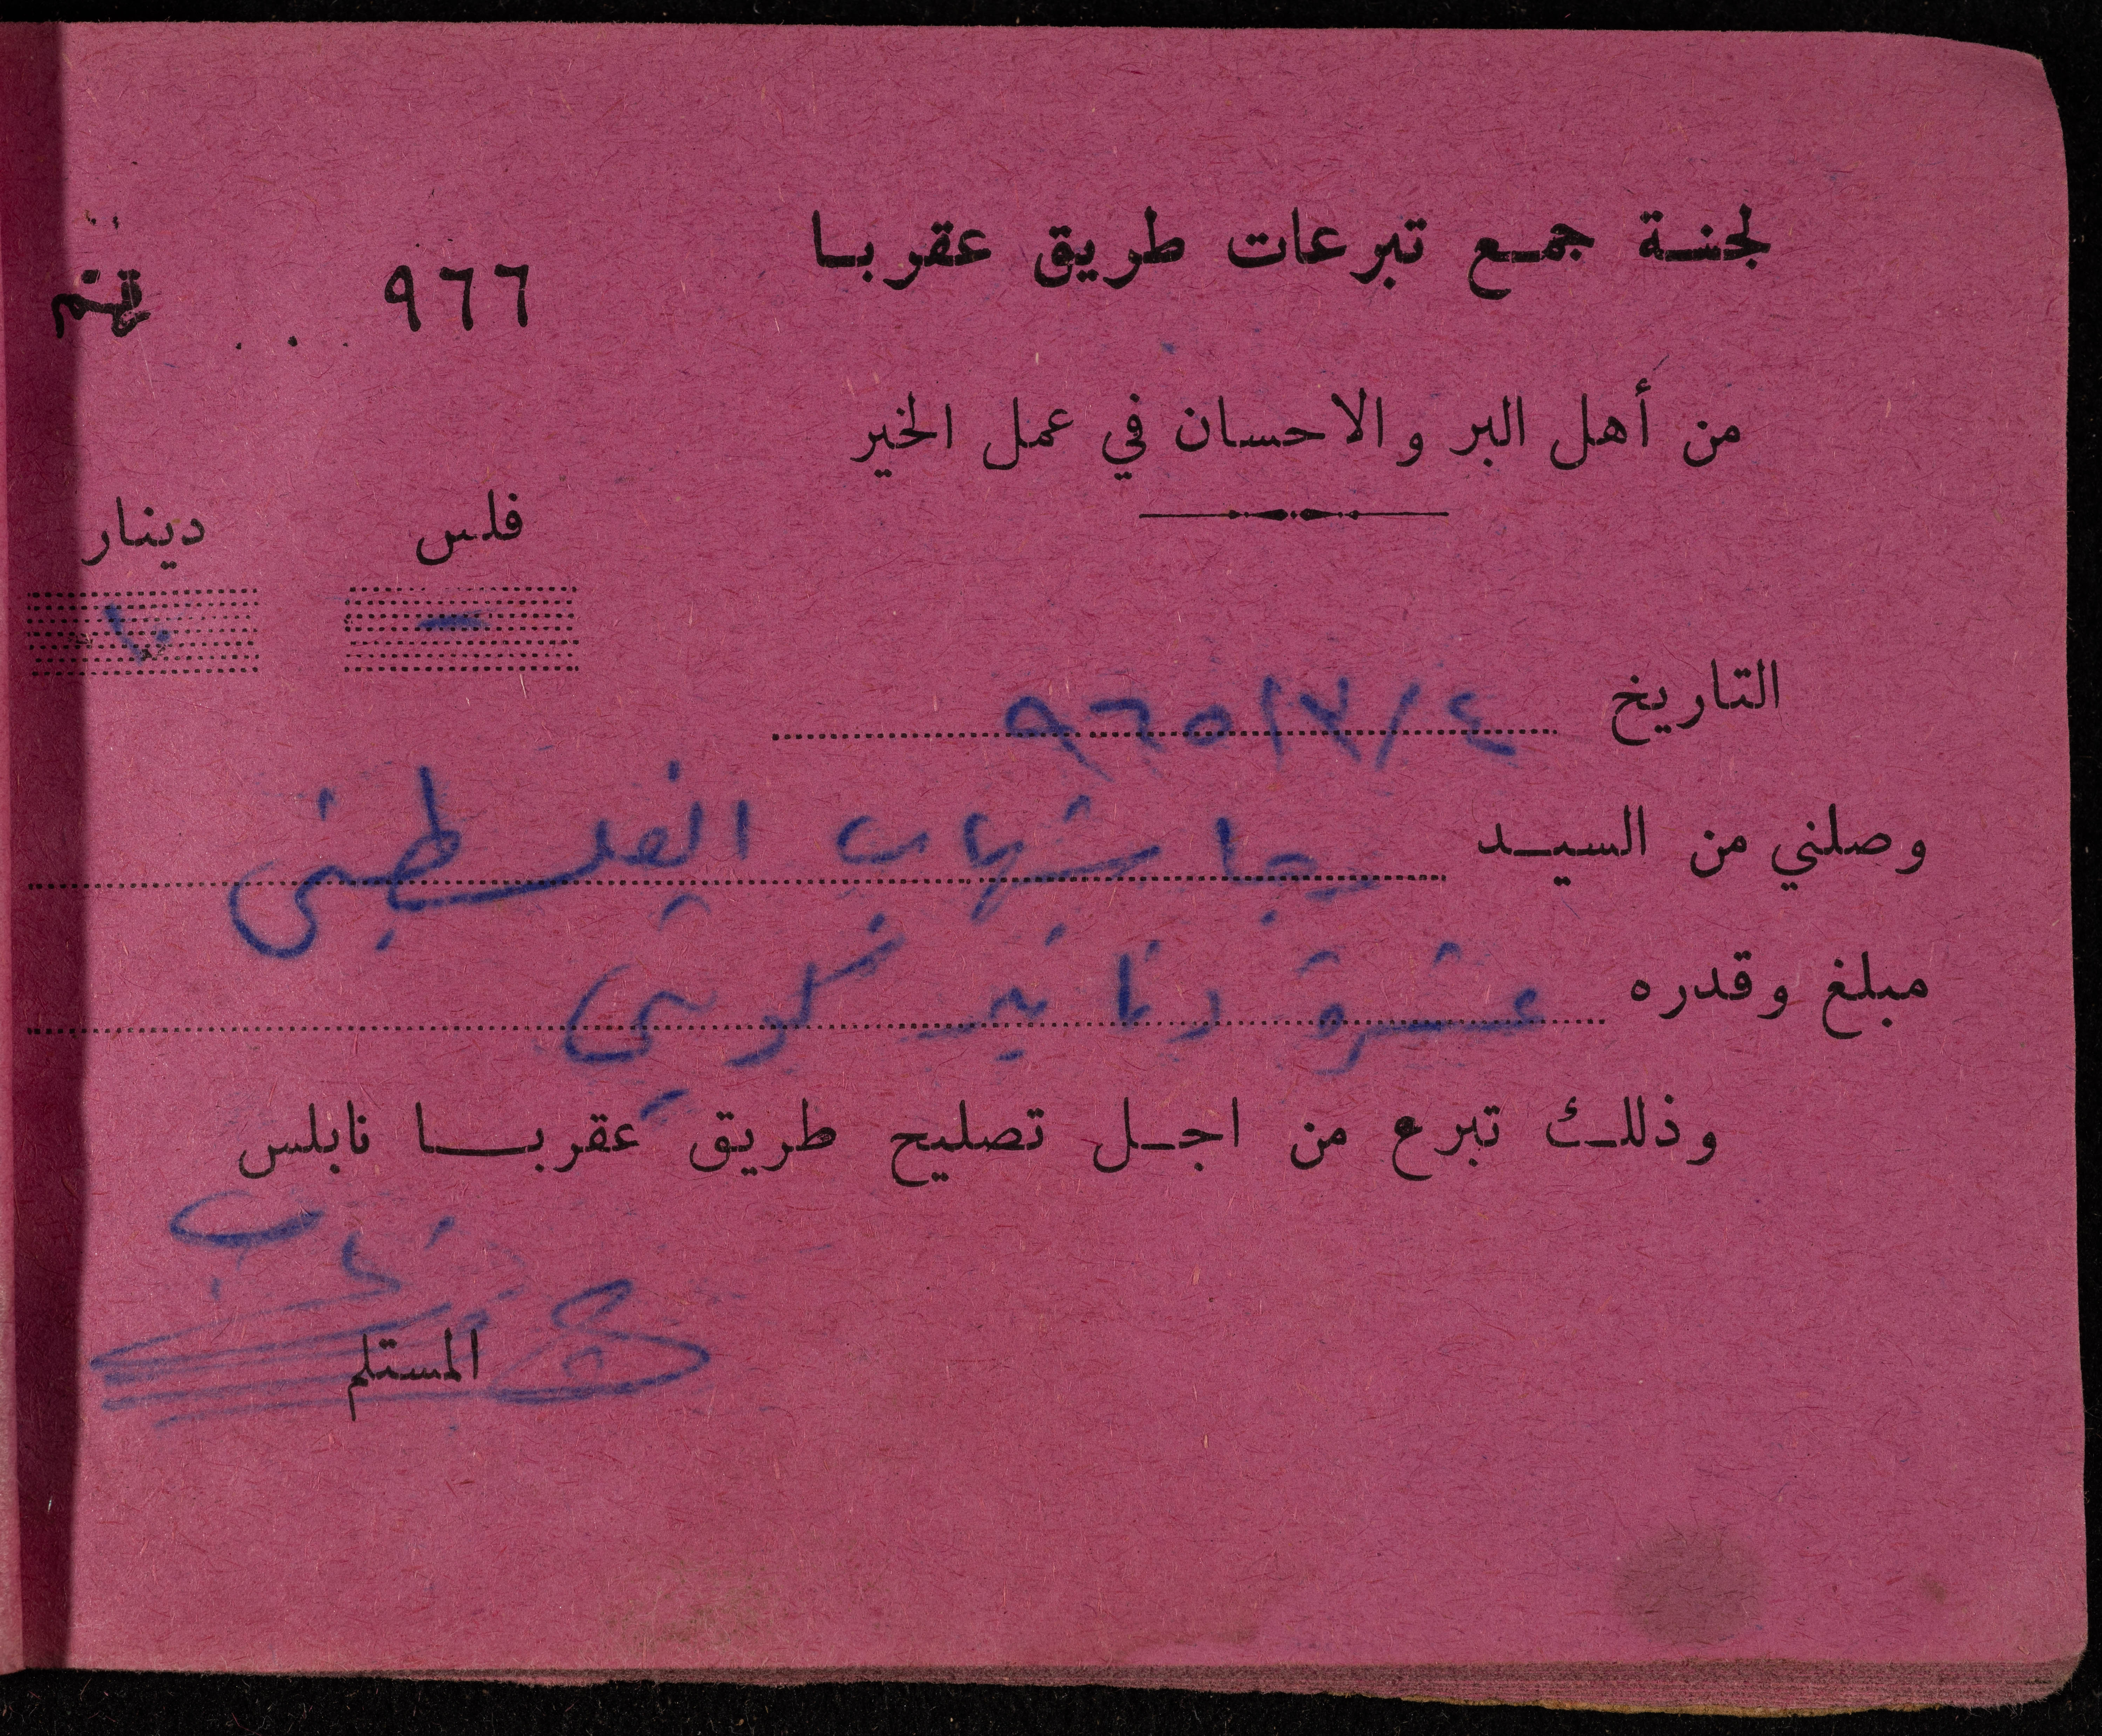 لجنة جمع تبرعات طريق عقربا
٩٦٦
من أهل البر والاحسان في عمل الخير
فلس دينار
- ١٠
التاريخ ٤/٣/٩٦٥
وصلني من السيد رجا شهاب الفلسطيني
مبلغ وقدره عشرة دنانير كويتي
وذلك تبرع من اجل تصليح طريق عقربا نابلس
المستلم